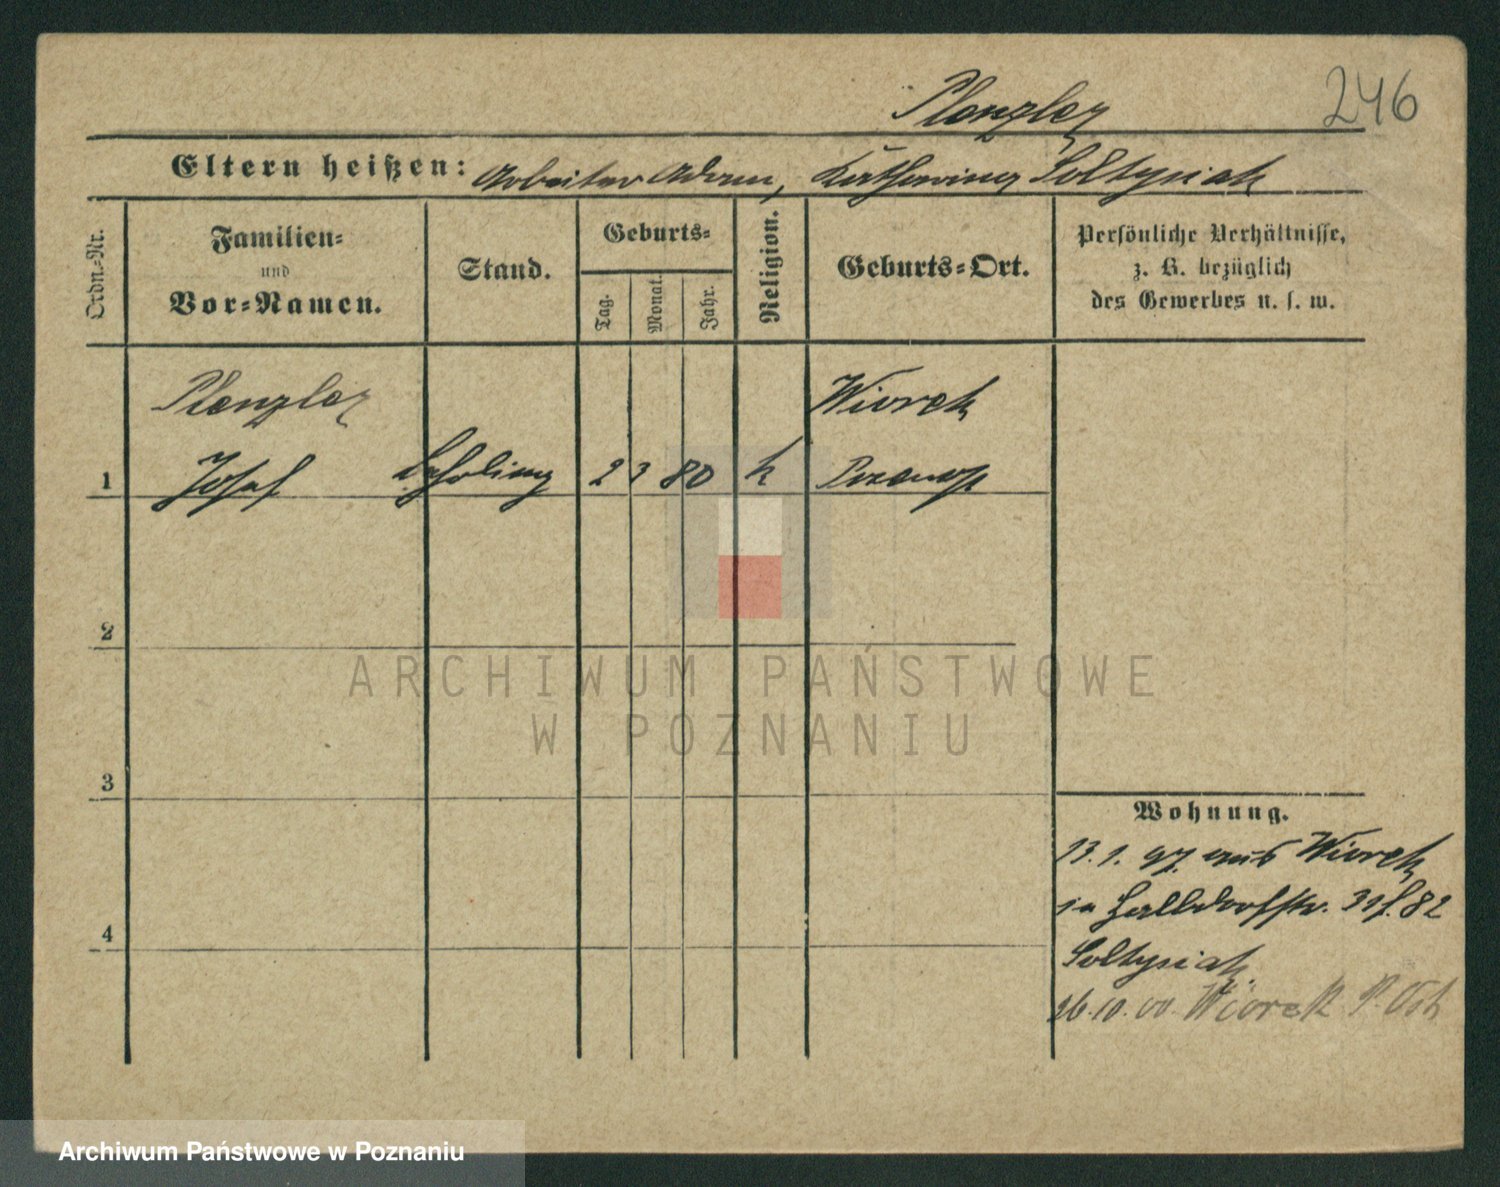 Plenzler
246
Eltern heißen: Arbeiter Adam, Katharina Soltysiak
Ordn.-Nr.
Familien- und Vor-Namen.
Stand.
Geburts-
Tag. Monat. Jahr.
Religion.
Geburts-Ort.
Persönliche Verhältnisse,
z. B. bezüglich
des Gewerbes u. s. w.
Plenzler Wiorek
1 Josef Lehrling 2 3 80 k
2
ARCHIWUM PAŃSTWOWE
W POZNANIU
3
Wohnung.
13.1. 97. aus Wiorek
in 82
4
Soltysiak
26.10.00. Wiorek P. Ost
Archiwum Państwowe w Poznaniu